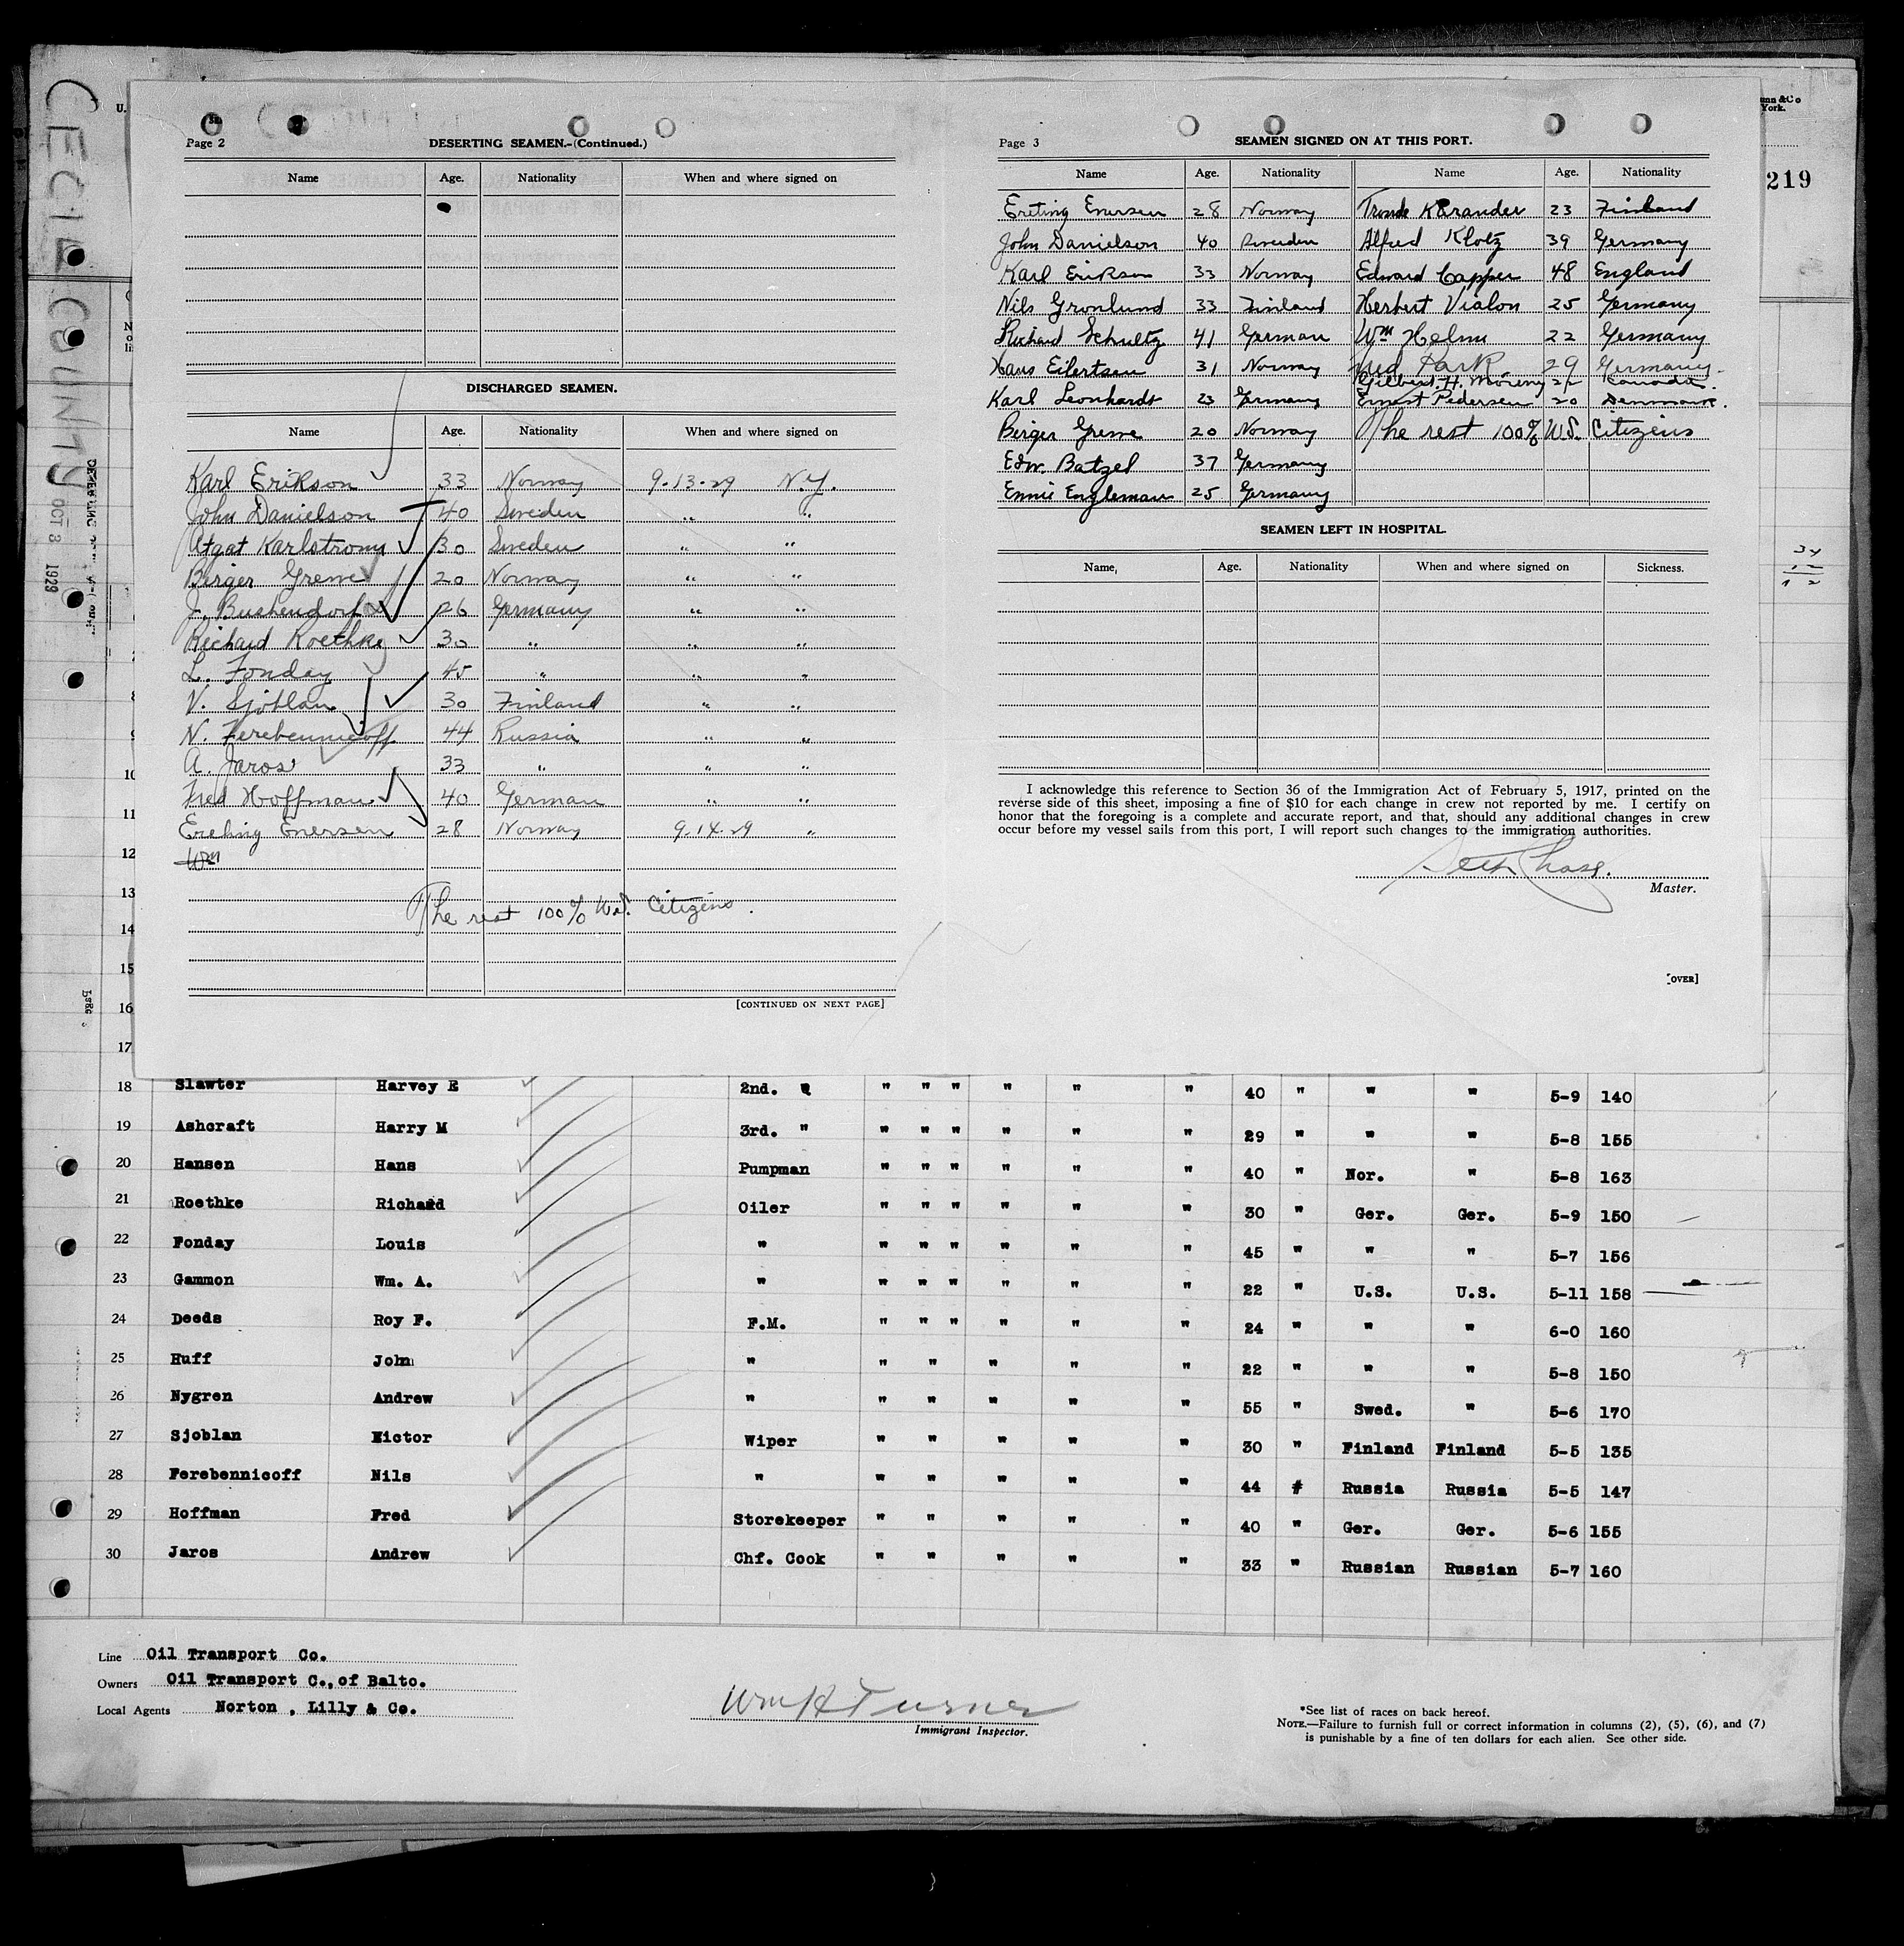 CECIL COUNTY
OCT 3 1929
219
Page 2
DESERTING SEAMEN.-(Continued.)
Name Age. Nationality When and where signed on
DISCHARGED SEAMEN.
Name Age. Nationality When and where signed on
Karl Erikson 33 Norway 9-13-29 N.Y.
John Danielson 40 Sweden " "
Karlstrom 30 Sweden " "
Birger Greme 20 Norway " "
J. Bushendorf 26 Germany " "
Richard Roethke 30 " " "
L. Fonday 45 " " "
V. Sjoblan 30 Finland " "
N. Ferebennicoff 44 Russia " "
A. Jaros 33 " " "
Fred Hoffman 40 German " "
Erching Enersen 28 Norway 9-14-29 "
Wm
The rest 100% U.S. Citizens.
[CONTINUED ON NEXT PAGE]
Page 3
SEAMEN SIGNED ON AT THIS PORT.
Name Age. Nationality Name Age. Nationality
Ereting Enersen 28 Norway Karander 23 Finland
John Danielson 40 Sweden Alfred Klotz 39 Germany
Karl Erikson 33 Norway Edward Capper 48 England
Nils Gronlund 33 Finland Herbert Vialon 25 Germany
Richard Schultz 41 German Wm Helm 22 Germany
Hans Eilertsen 31 Norway Park 29 Germany
Gilbert. H. 22 Canada.
Karl Leonhardt 23 Germany Ernest Pedersen 20 Denmark.
Birger Greme 20 Norway The rest 100% U.S. Citizens
Edw. Batzel 37 Germany
Ennis Engleman 25 Germany
SEAMEN LEFT IN HOSPITAL.
Name, Age. Nationality When and where signed on Sickness.
I acknowledge this reference to Section 36 of the Immigration Act of February 5, 1917, printed on the
reverse side of this sheet, imposing a fine of $10 for each change in crew not reported by me. I certify on
honor that the foregoing is a complete and accurate report, and that, should any additional changes in crew
occur before my vessel sails from this port, I will report such changes to the immigration authorities.
Seth Chase.
Master.
[OVER]
10
11
12
13
14
15
16
17
18 Slawter Harvey E 2nd. " " " " " " " 40 " " " 5-9 140
19 Ashcraft Harry M 3rd. " " " " " " " 29 " " " 5-8 155
20 Hansen Hans Pumpman " " " " " " 40 " Nor. " 5-8 163
21 Roethke Richard Oiler " " " " " " 30 " Ger. Ger. 5-9 150
22 Fonday Louis " " " " " " " 45 " " " 5-7 156
23 Gammon Wm. A. " " " " " " " 22 " U.S. U.S. 5-11 158
24 Deeds Roy F. F.M. " " " " " " 24 " " " 6-0 160
25 Huff John " " " " " " 22 " " " 5-8 150
26 Nygren Andrew " " " " " " 55 " Swed. " 5-6 170
27 Sjoblan Nictor Wiper " " " " " 30 " Finland Finland 5-5 135
28 Ferebennicoff Nils " " " " " " 44 # Russia Russia 5-5 147
29 Hoffman Fred Storekeeper " " " " " 40 " Ger. Ger. 5-6 155
30 Jaros Andrew Chf. Cook " " " " " 33 " Russian Russian 5-7 160
Line Oil Transport Co.
Owners Oil Transport C., of Balto.
Local Agents Norton , Lilly & Co.
Wm H Turner
Immigrant Inspector.
*See list of races on back hereof.
NOTE.—Failure to furnish full or correct information in columns (2), (5), (6), and (7)
is punishable by a fine of ten dollars for each alien. See other side.